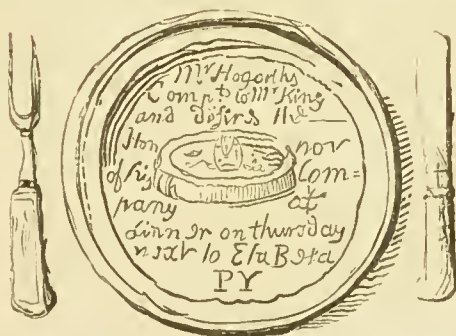 Mr Hogarths
Compts to Mr King
and desires the
Hon nov
of his Com=
pany at
dinner on thursday
next to Eta Beta
PY